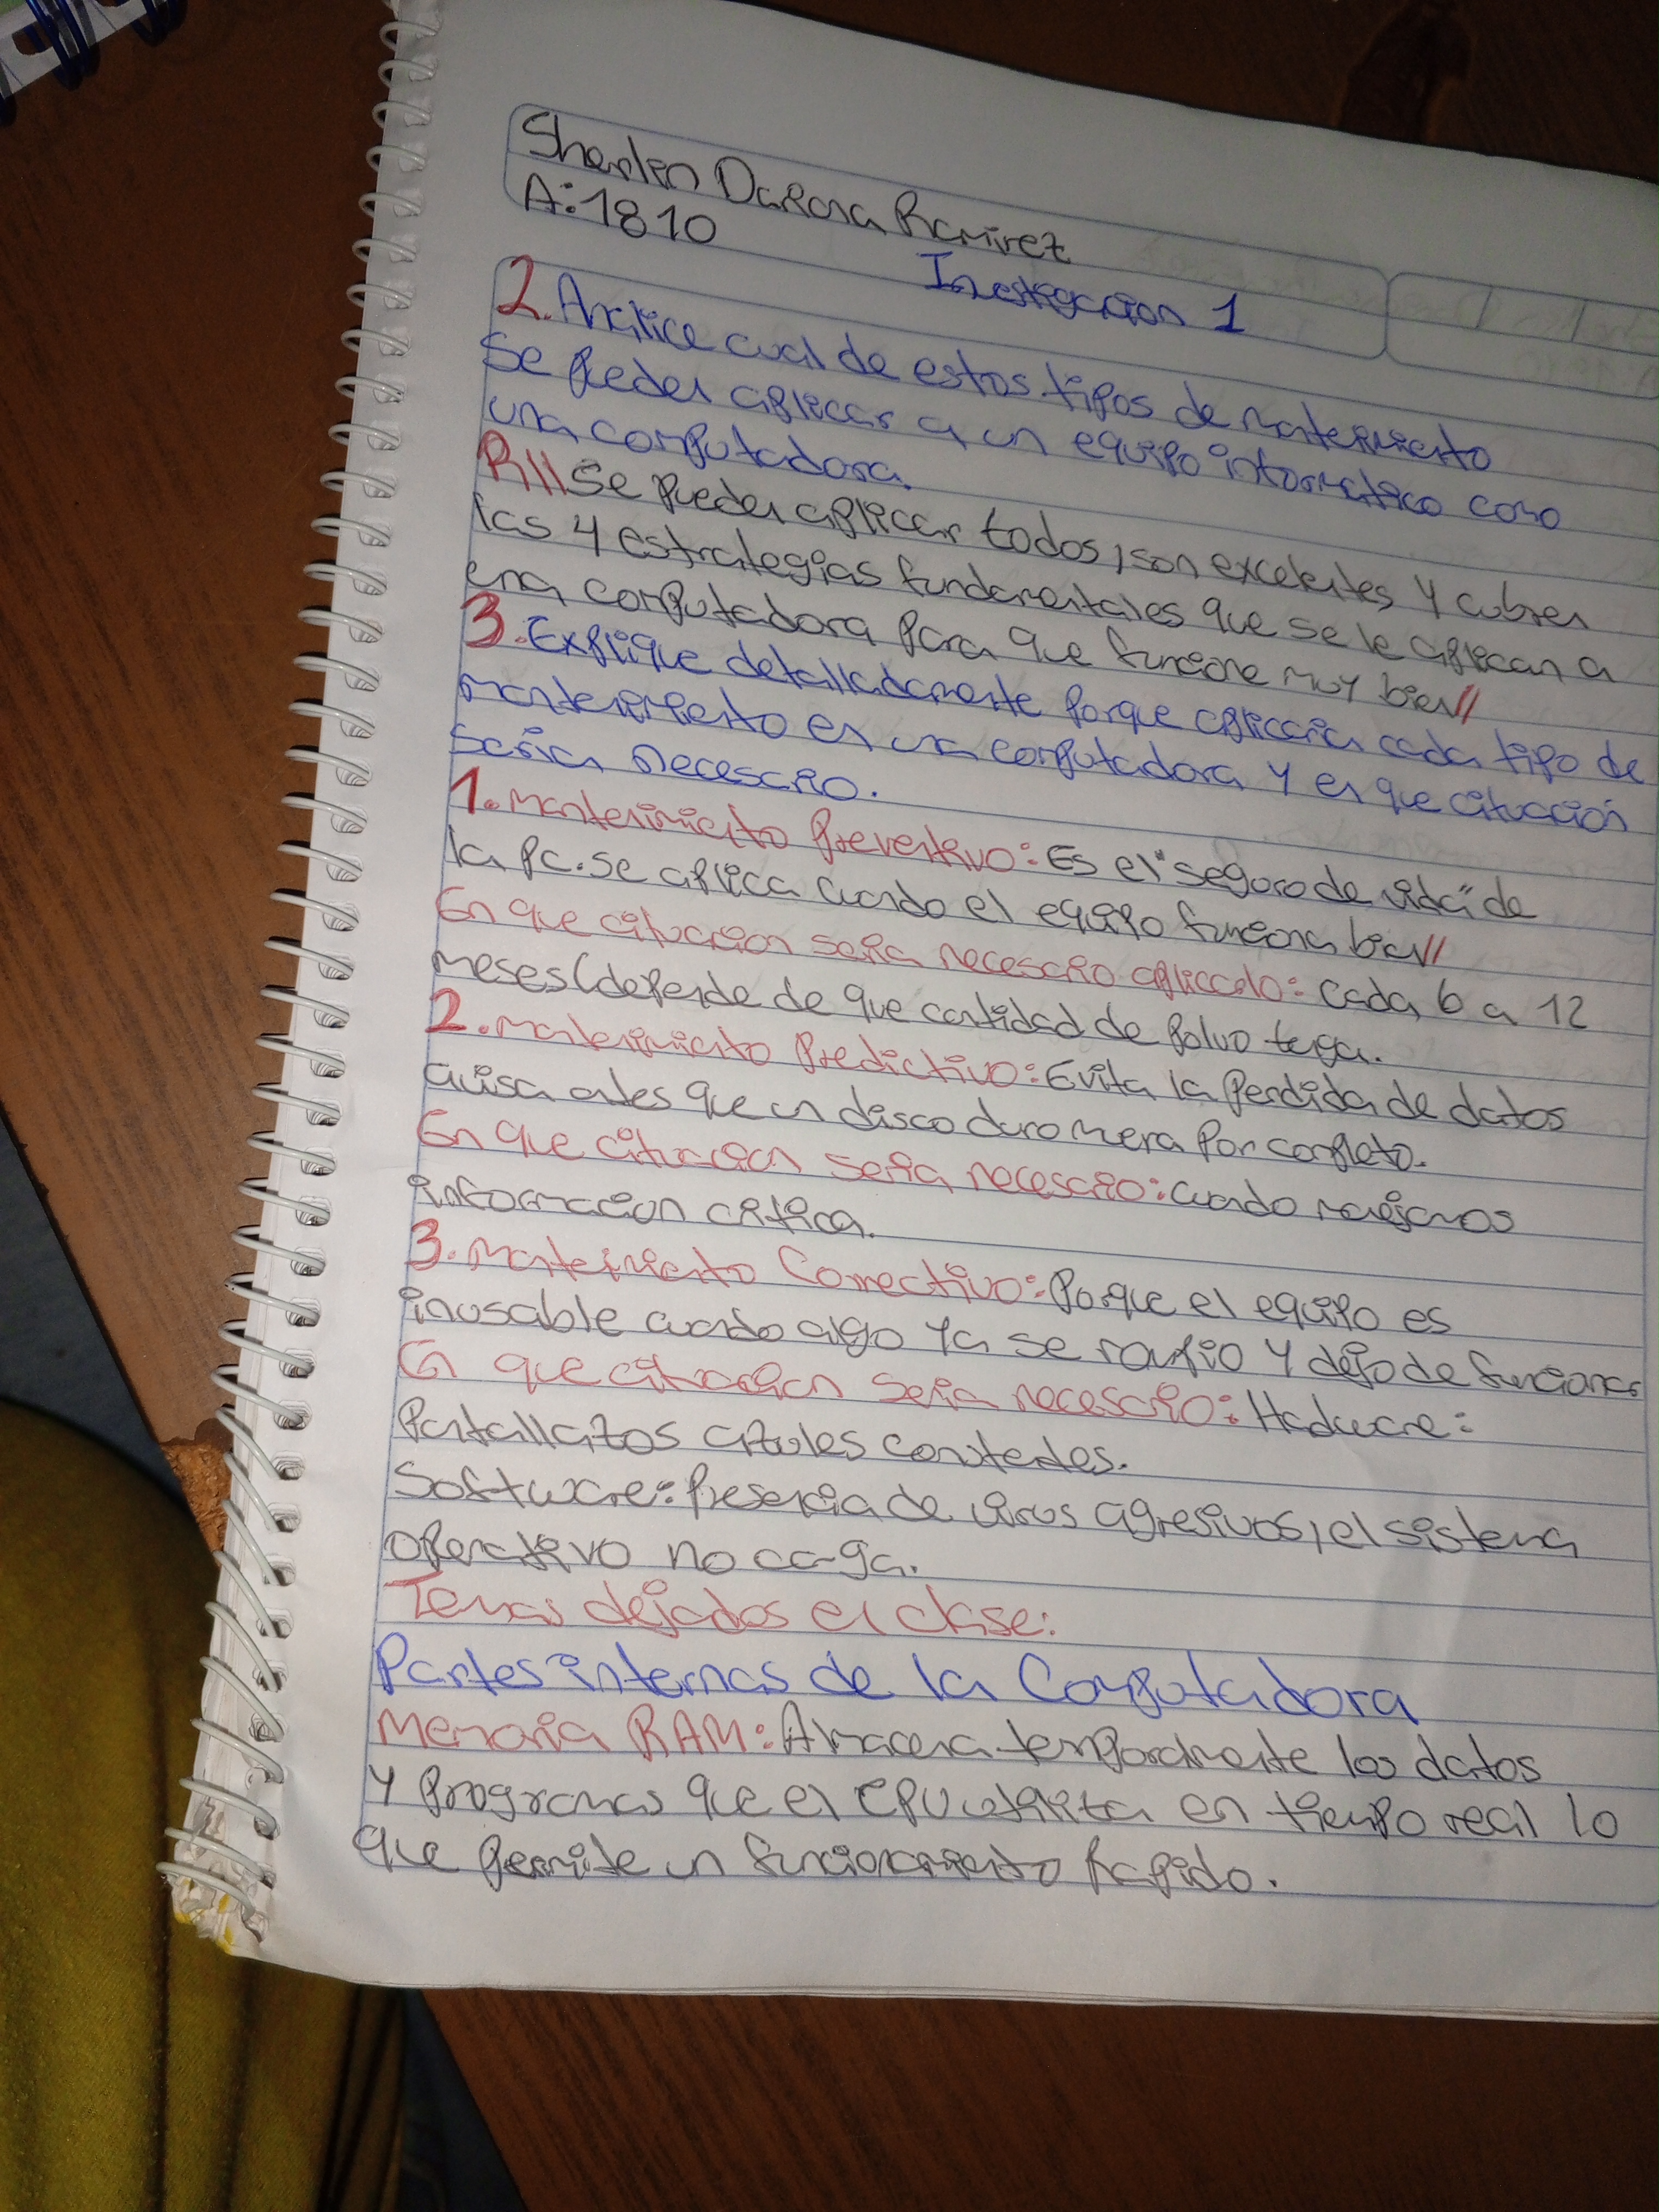 Sherlin Dariana Ramirez
A:1810
Investigacion 1
2. Analice cual de estos tipos de mantenimiento
se pueden aplicar a un equipo informatico como
una computadora.
R// Se pueden aplicar todos, son excelentes y cubren
las 4 estrategias fundamentales que se le aplican a
una computadora para que funcione muy bien//
3. Explique detalladamente porque aplicaria cada tipo de
mantenimiento en una computadora y en que cituación
seria necesario.
1. Mantenimiento Preventivo: Es el "seguro de vida" de
la pc. se aplica cuando el equipo funciona bien//
En que cituacion seria necesario aplicarlo: Cada 6 a 12
meses (depende de que cantidad de polvo tenga.
2. Mantenimiento Predictivo: Evita la perdida de datos
avisa antes que un disco duro muera por completo.
En que cituacion seria necesario: Cuando manejamos
información critica.
3. Mantenimiento Correctivo: Porque el equipo es
inusable cuando algo ya se rompio y dejo de funcionar
En que cituacion seria necesario: Hadware:
Pantallazos azules constantes.
Software: Presencia de virus agresivos, el sistema
operativo no carga.
Temas dejados en clase:
Partes internas de la Computadora
Memoria RAM: Almacena temporalmente los datos
y programas que el CPU utiliza en tiempo real lo
que permite un funcionamiento rapido.